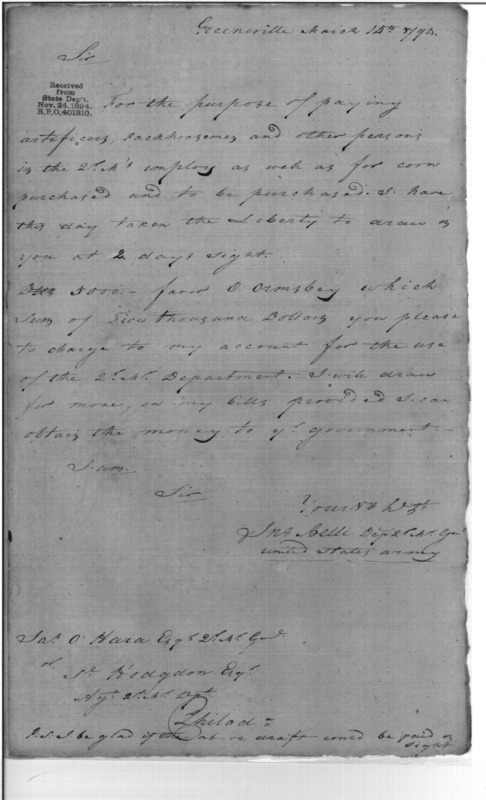 Greeneville March 14th 1794.
Sir
Received
from
State Dep't.
Nov. 24. 1894.
R,P,O,401310.
For the purpose of paying
artificers, packhorsemen and other persons
in the Qr. Mrs employ as well as for corn
purchased and to be purchased. I have
this day taken the Liberty to draw on
you at 2 days sight.
Dolls 5000.— favor O. Ormsby which
Sum of five thousand Dollars you please
to charge to my account for the use
of the Qr. Mr. Department.— I will draw
for money, on my bills provided I can
obtain the money to yr. government.—
I am.
Sir
Your
Jno. Belli Dep. Qr. Mr. Genl
united States army
Jas. O'Hara Esqr. Qr. Mr. Genl.
or
Sl. Hodgdon Esqr.
Agt. Qr. Mr. Dept
Philada
P.S. I be glad if the above draft could be paid on
sight